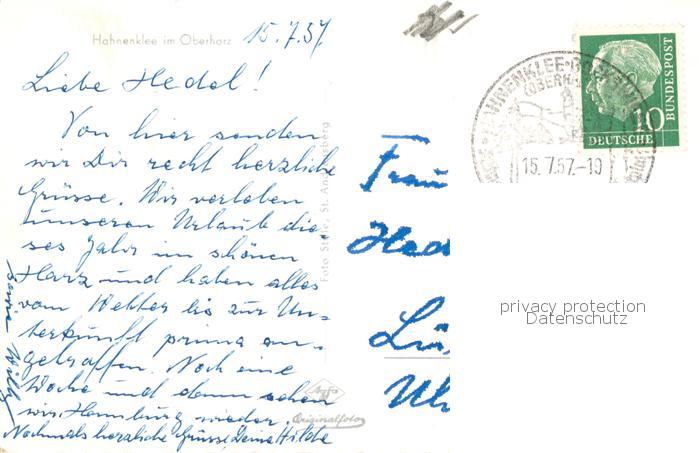 Hahnenklee im Oberharz
15.7.57
Liebe Hedel!
Von hier senden
wir Dir recht herzliche
Grüsse. Wir verleben
unseren Urlaub die-
ses Jahr im schönen
Harz und haben alles
vom Wetter bis zur Un-
terkunft prima an-
getroffen. Noch eine
Woche und dann sehen
wir Hamburg wieder.
Nochmals herzliche Grüsse, Deine Hilde
sowie Willy
Foto Stelle, St. Andreasberg
Agfa
Originalfoto
Frau
Hed
Lü
HAHNENKLEE-BOCKSWIESE
(OBERHARZ)
15.7.57.-10
10
DEUTSCHE
BUNDESPOST
privacy protection
Datenschutz